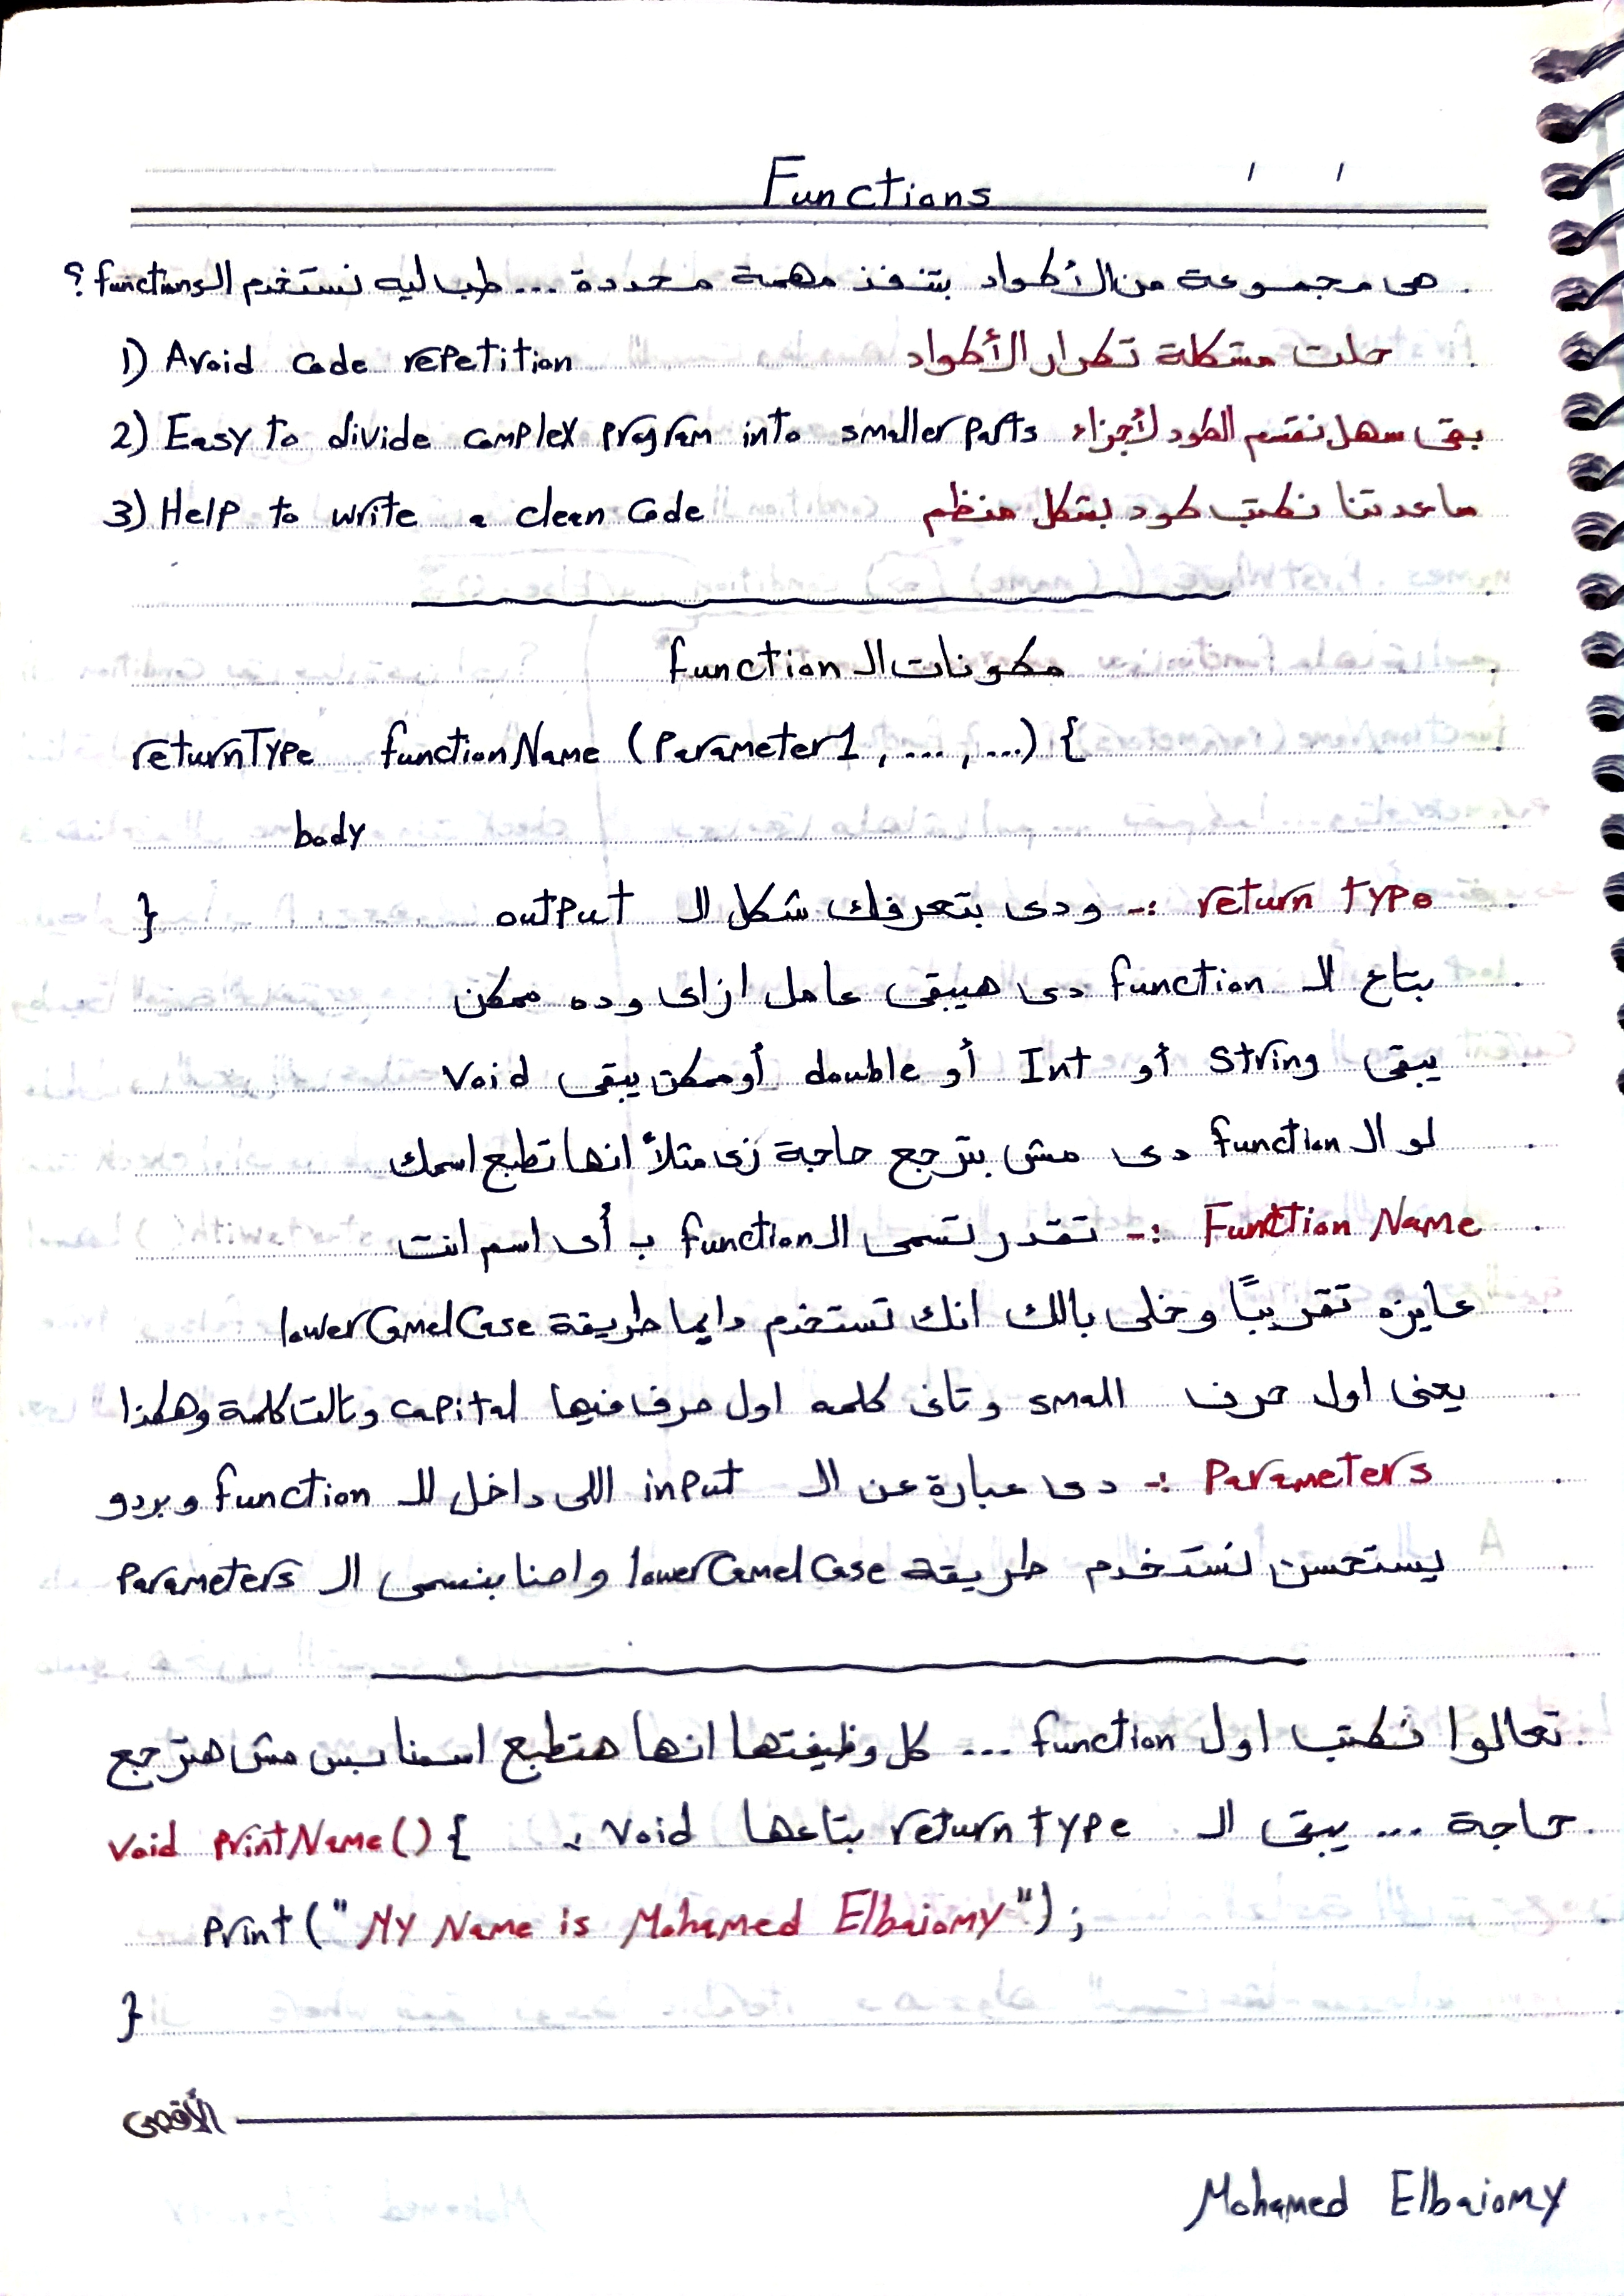 Functions
هى مجموعة من الأكواد بتنفذ مهمة محددة ... طب ليه نستخدم الـ functions ؟
1) Avoid code repetition حلت مشكلة تكرار الأكواد
2) Easy to divide complex program into smaller parts بقى سهل نقسم الكود لأجزاء
3) Help to write a clean code ساعدتنا نكتب كود بشكل منظم
مكونات الـ function
returnType functionName (Parameter1 , ... , ...) {
body
} return type :- ودى بتعرفك شكل الـ output
بتاع الـ function دى هيبقى عامل ازاى وده ممكن
يبقى String أو Int أو double أو ممكن يبقى void
لو الـ function دى مش بترجع حاجة زى مثلاً انها تطبع اسمك
Function Name :- تقدر تسمى الـ function بـ أى اسم انت
عايزه تقريباً وخلى بالك انك تستخدم دايما طريقة lowerCamelCase
يعنى اول حرف small وتانى كلمه اول حرف فيها capital وتالت كلمة وهكذا
Parameters :- دى عبارة عن الـ input اللى داخل للـ function وبردو
يستحسن نستخدم طريقه lowerCamelCase واحنا بنسمى الـ Parameters
تعالوا نكتب اول function ... كل وظيفتها انها هتطبع اسمنا بس مش هترجع
حاجة ... يبقى الـ return type بتاعها void :
void printName() {
print (" My Name is Mohamed Elbaiomy ");
}
الأقصى
Mohamed Elbaiomy